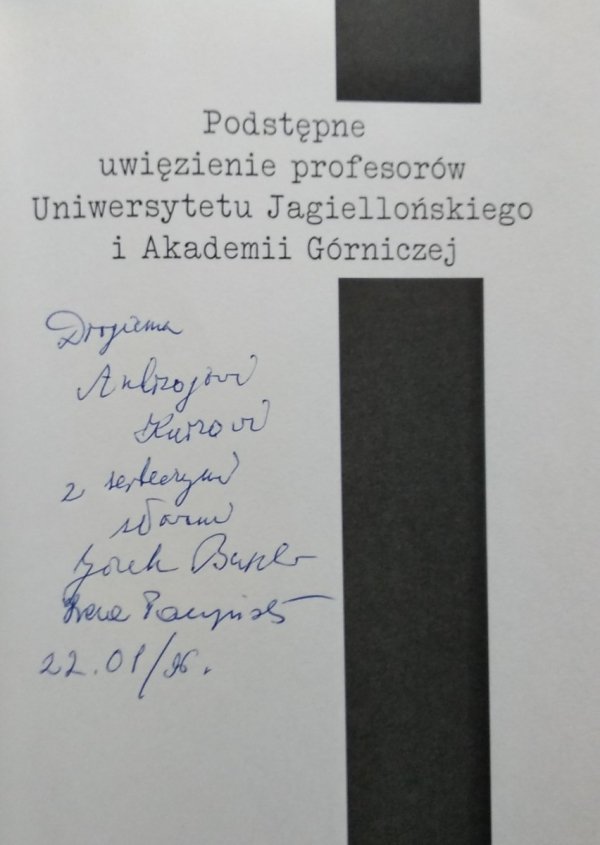 Podstępne
uwięzienie profesorów
Uniwersytetu Jagiellońskiego
i Akademii Górniczej
Drogiemu
Andrzejowi
z serdecznymi
słowami
Irena Paczyńska
22.01/96.